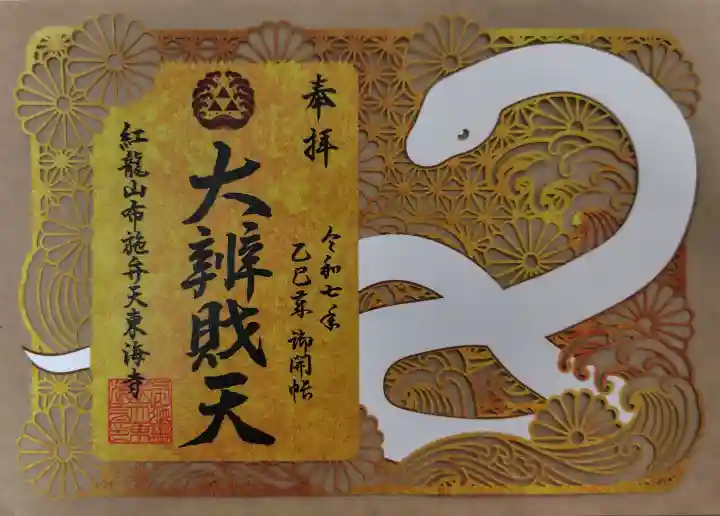 奉拝
令和七年
乙巳歳 御開帳
大辨財天
紅龍山布施弁天東海寺